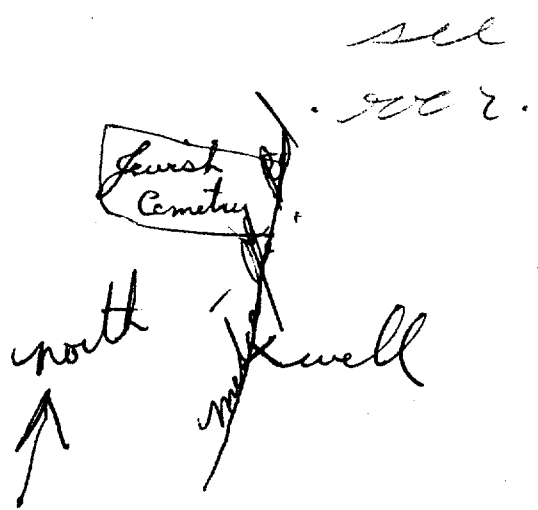 see
Jewish
Cemetry
north
well